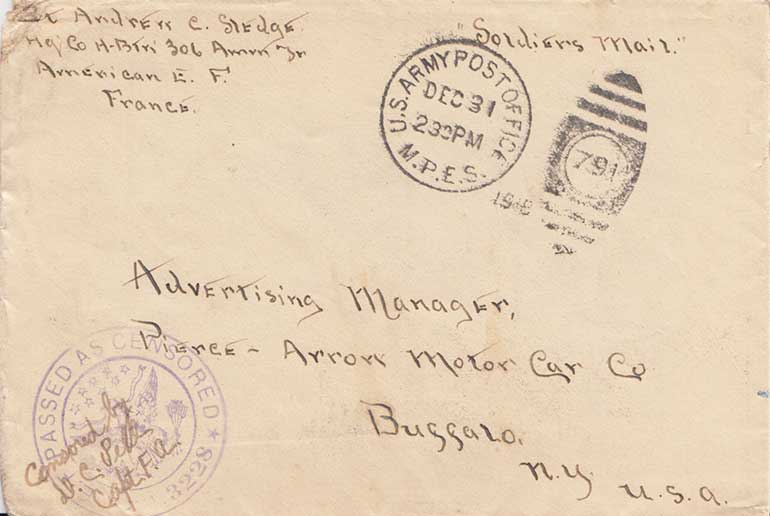 Lt Andrew C. Sledge.
Hq Co H-Btn 306 Amm Tn
American E. F.
France.
"Soldiers Mail."
U.S. ARMY POST OFFICE
DEC 31
230PM
M.P.E.S.
1918
791
Advertising Manager,
Pierce - Arrow Motor Car Co
Buffalo,
N.Y.
U.S.A.
PASSED AS CENSORED
3228
Censored by
Capt. F.A.